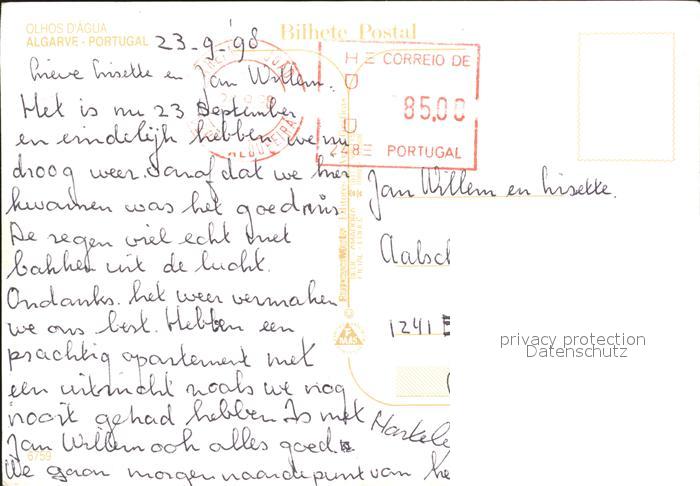 OLHOS D'ÁGUA
ALGARVE - PORTUGAL
Bilhete Postal
23-9-'98
CORREIO DE
85,00
PORTUGAL
ALBUFEIRA
Lieve Lisette en Jan Willem.
Het is nu 23 September
en eindelijk hebben we nu
droog weer. Vanaf dat we hier
kwamen was het goed mis
De regen viel echt met
bakken uit de lucht.
Ondanks het weer vermaken
we ons best. Hebben een
prachtig apartement met
een uitzicht zoals we nog
nooit gehad hebben. Is met
Jan Willem ook alles goed.
We gaan morgen naar de punt van he
6759
Jan Willem en Lisette.
Aalsc
1241
privacy protection
Datenschutz